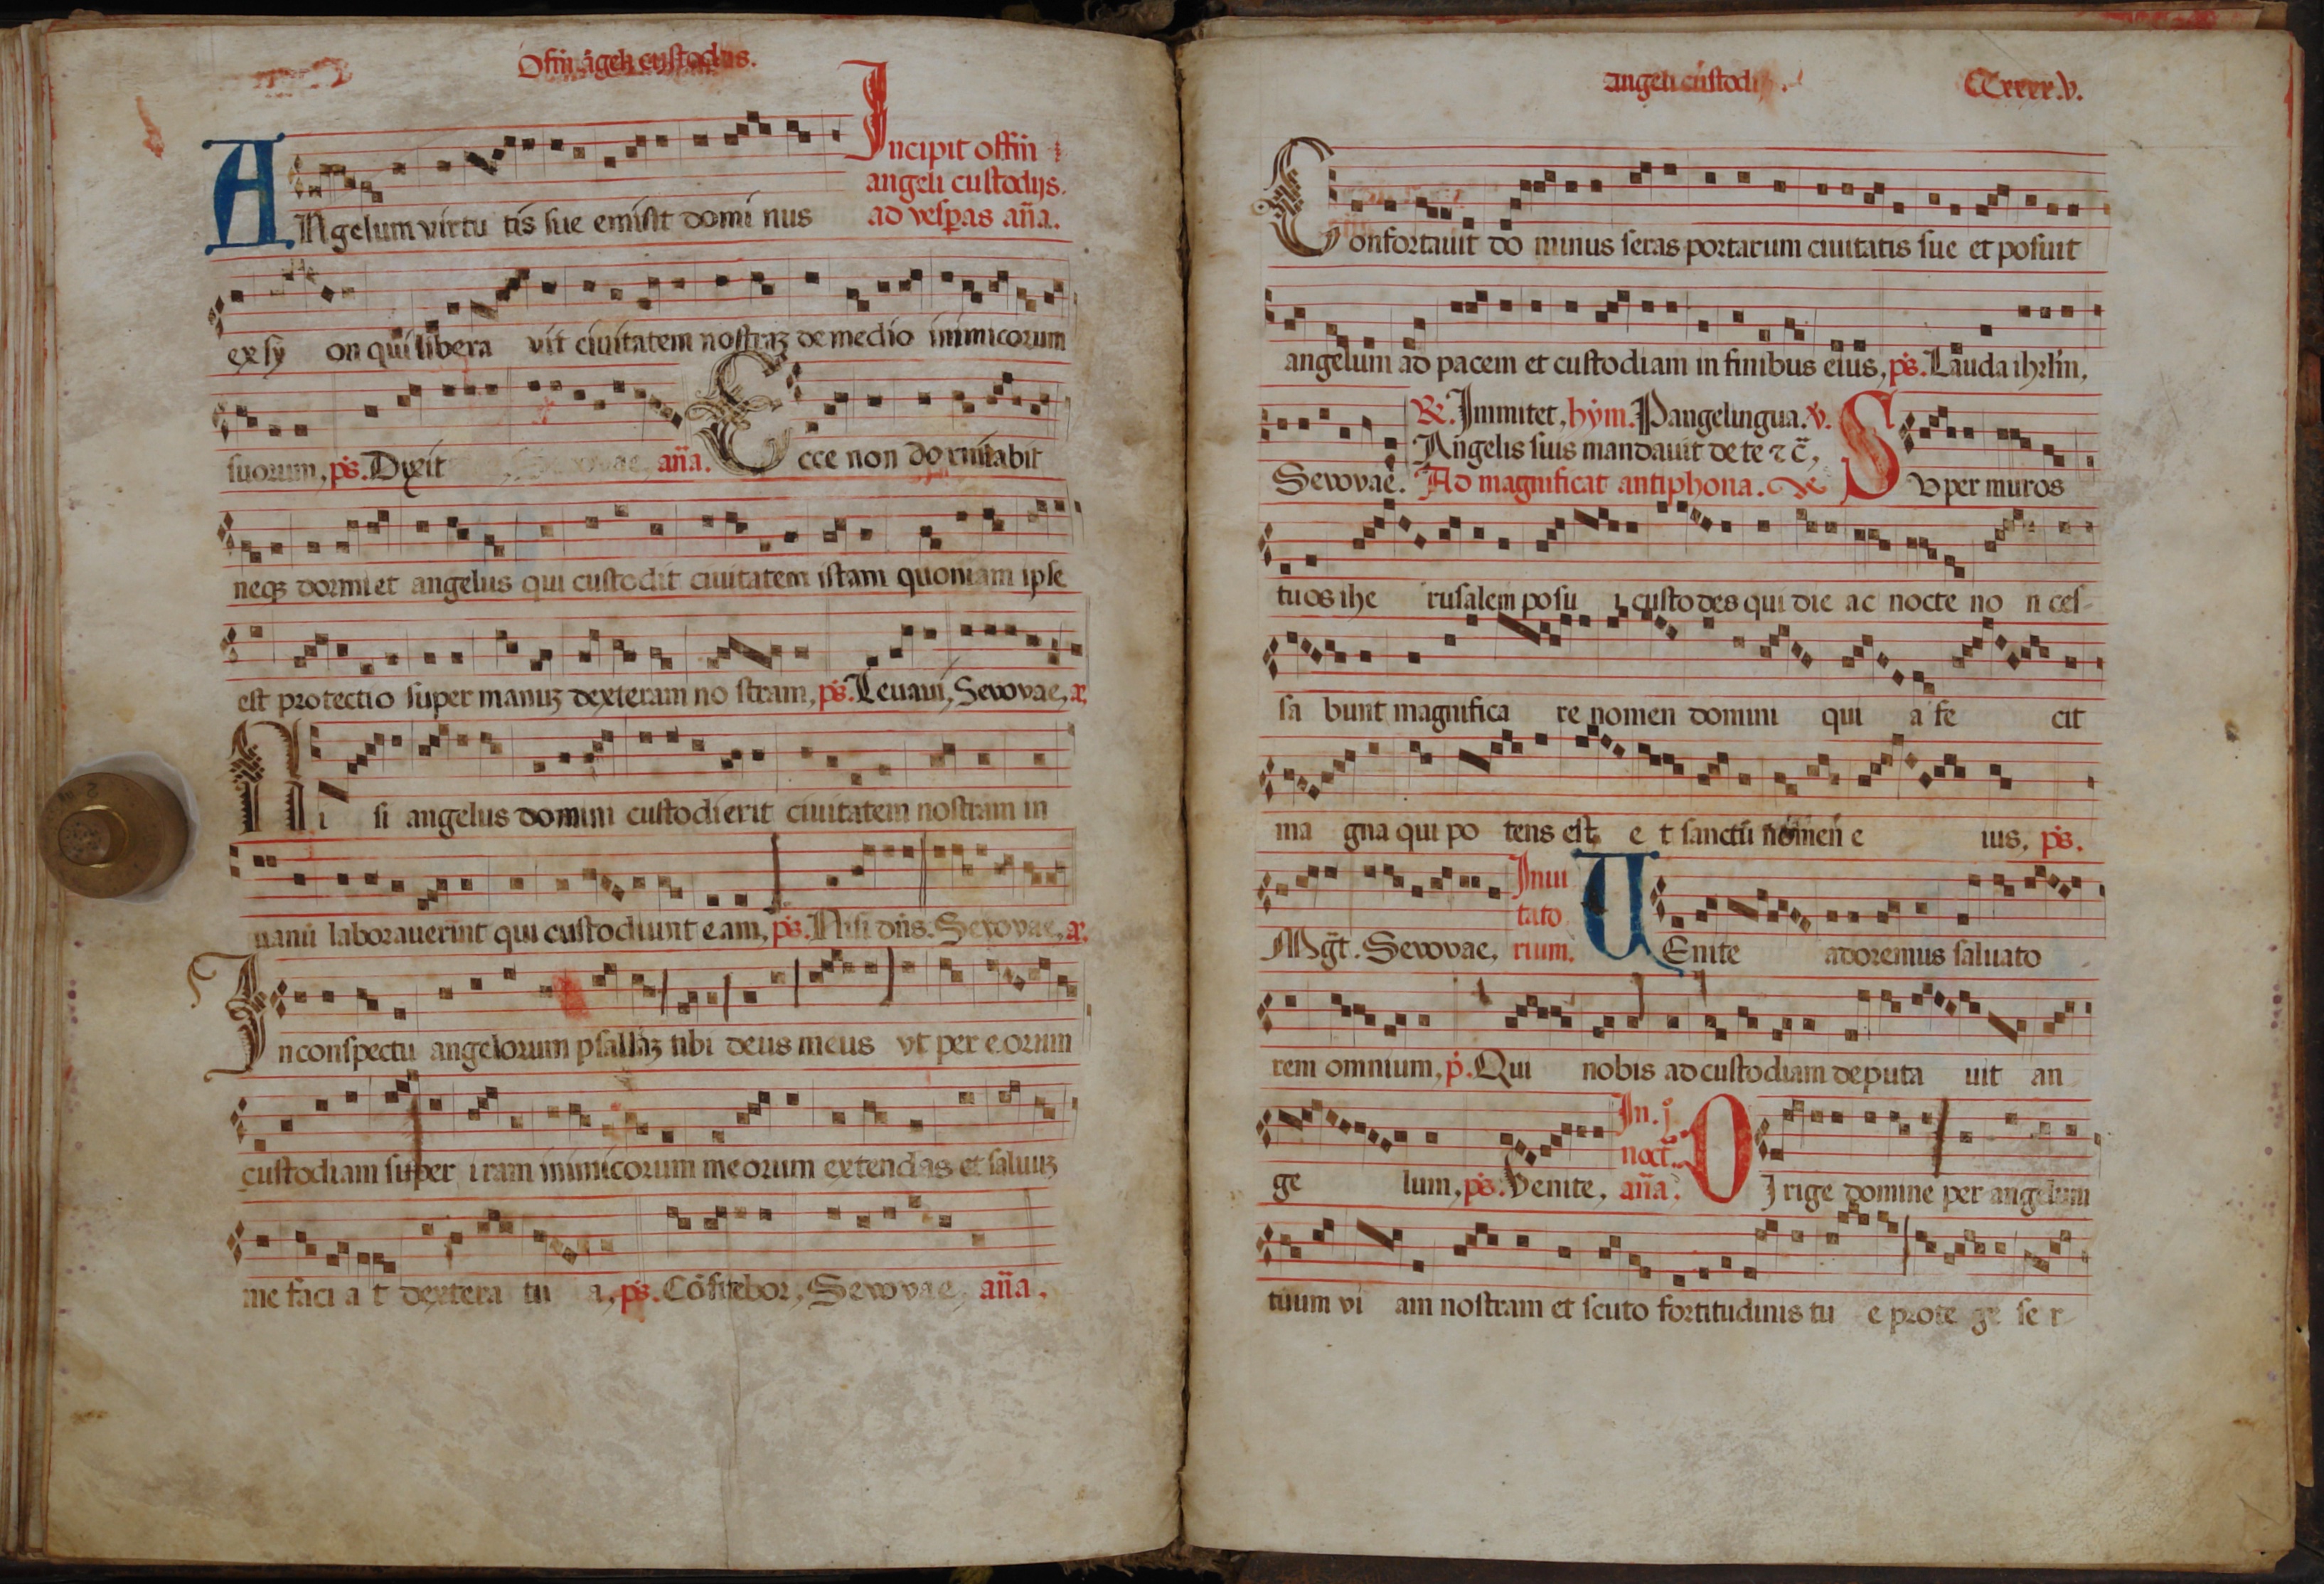 Offiỹ ãgeli custodis.
Incipit offiỹ
angeli custodijs.
ad vesp̲as añа.
ANgelum virtu tis sue emisit domi nus
ex sy on qui libera vit ciuitatem nostraꝫ de medio inimicorum
suorum, p̄s. Dixit añа. Ecce non do rmitabit
neqꝫ dormiet angelus qui custodit ciuitatem istam quoniam ipse
est protectio super manuꝫ dexteram no stram, p̄s. Leuaui, Seuouae, a.
Ni si angelus domini custodierit ciuitatem nostram in
uanũ laborauerint qui custodiunt eam, p̄s. Nisi dñs. Seuouae, a.
In conspectu angelorum psallaꝫ tibi deus meus vt per eorum
custodiam super iram inimicorum meorum extendas et saluuꝫ
me faci a t dextera tu a, p̄s. Cõfitebor, Seuouae, añа.
angeli custodis. CCxxxx.v.
Confortauit do minus seras portarum ciuitatis sue et posuit
angelum ad pacem et custodiam in finibus eius, p̄s. Lauda ihrl̃m,
℟. Immitet, hym. Pangelingua. ℣.
Angelis suis mandauit de te ⁊ c̃,
Seuouae. Ad magnificat antiphona. Super muros
tuos ihe rusalem posu i custodes qui die ac nocte no n ces-
sa bunt magnifica re nomen domini qui a fe cit
ma gna qui po tens est e t sanctũ nomen e ius, p̄s.
Mg̃t. Seuouae, Inui tato rium. VEnite adoremus saluato
rem omnium, p̄. Qui nobis ad custodiam deputa uit an
ge lum, p̄s. Venite, In. j. noct̃. añа. DIrige domine per angelum
tuum vi am nostram et scuto fortitudinis tu e prote ge se r